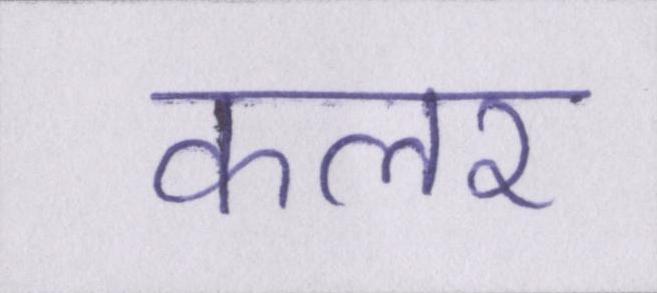 कलर